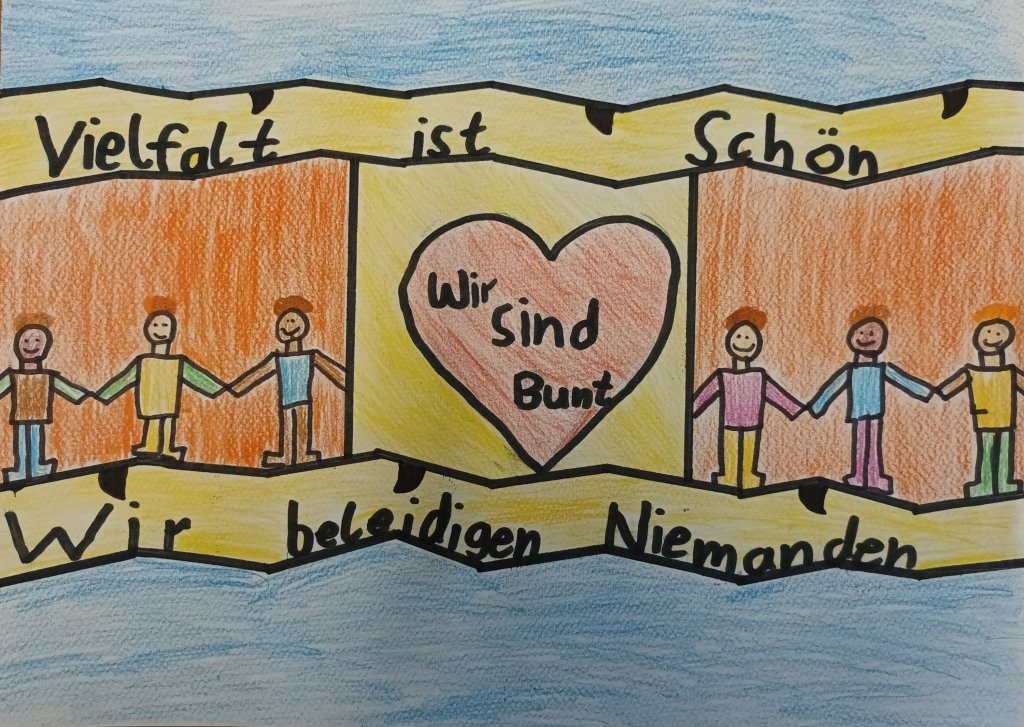 Vielfalt ist Schön
Wir
sind
Bunt
Wir beleidigen Niemanden